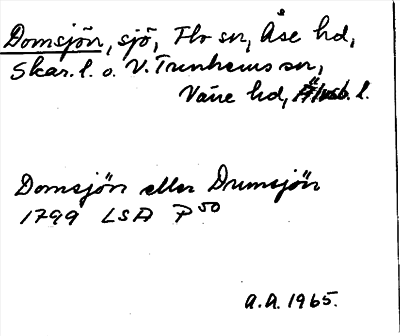 Domsjön, sjö, Flo sn, Åse hd,
Skar. l. o. V. Tunhems sn,
Väne hd, Älvsb. l.
Domsjön eller Drumsjön
1799 LSA P 50
A.A. 1965.